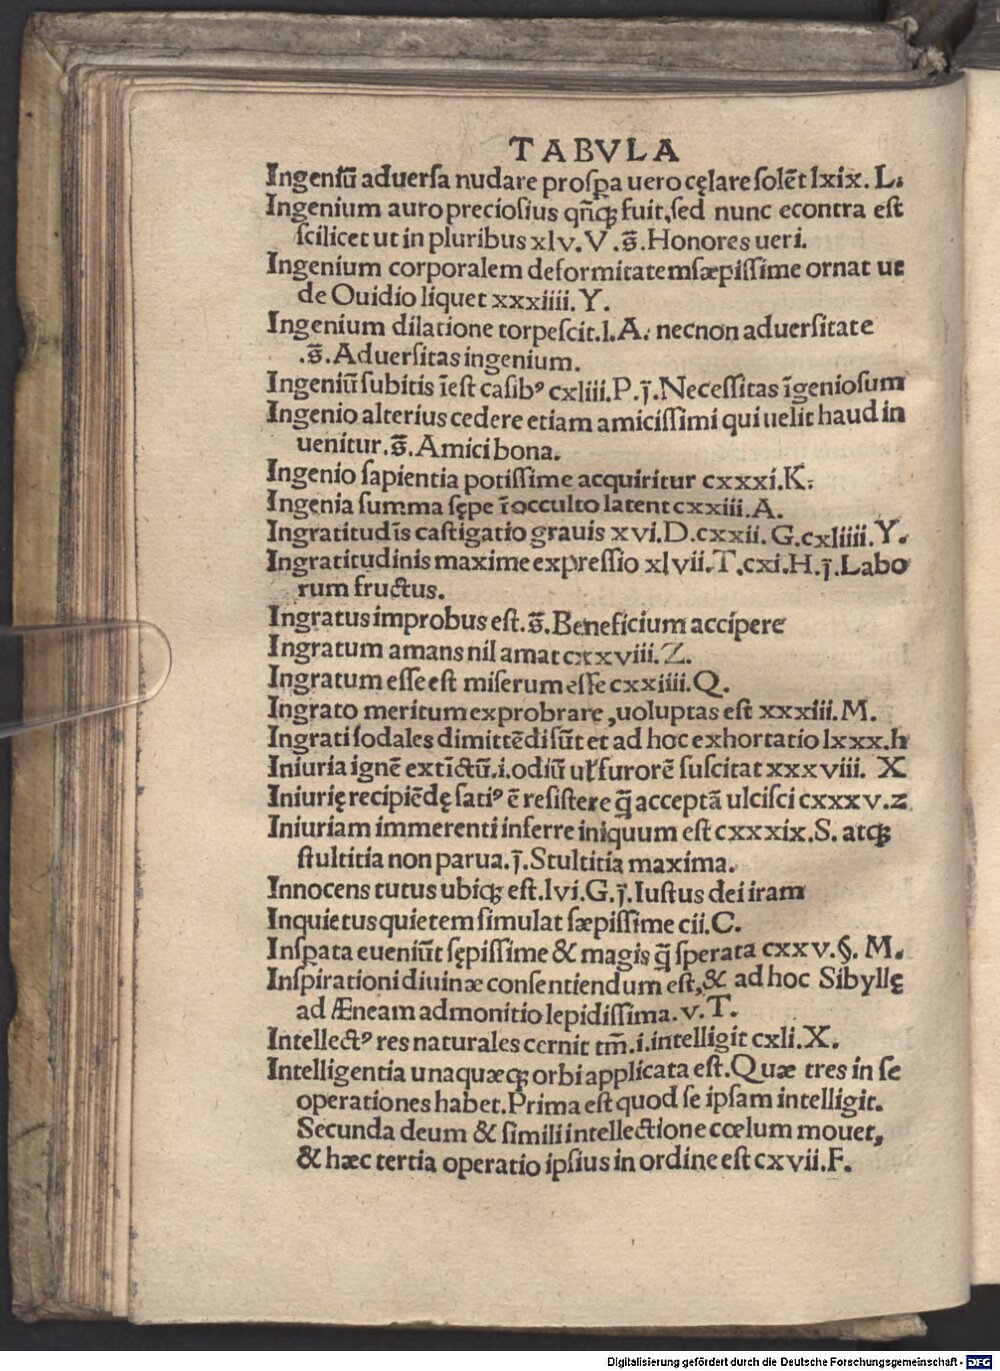 TABVLA
Ingeniũ aduersa nudare prosꝑa uero cęlare solẽt lxix. L.
Ingenium auro preciosius qñꝗ; fuit, sed nunc econtra est
scilicet ut in pluribus xlv. V .s̃. Honores ueri.
Ingenium corporalem deformitatem sæpissime ornat ut
de Ouidio liquet xxxiiii. Y.
Ingenium dilatione torpescit. l. A. necnon aduersitate
.s̃. Aduersitas ingenium.
Ingeniũ subitis ĩest casibꝰ cxliii. P. j̃. Necessitas ĩgeniosum
Ingenio alterius cedere etiam amicissimi qui uelit haud in
uenitur. s̃. Amici bona.
Ingenio sapientia potissime acquiritur cxxxi. K.
Ingenia summa sępe ĩ occulto latent cxxiii. A.
Ingratitudĩs castigatio grauis xvi. D. cxxii. G. cxliiii. Y.
Ingratitudinis maxime expressio xlvii. T. cxi. H. j̃. Labo
rum fructus.
Ingratus improbus est. s̃. Beneficium accipere
Ingratum amans nil amat cxxviii. Z.
Ingratum esse est miserum esse cxxiiii. Q.
Ingrato meritum exprobrare, uoluptas est xxxiii. M.
Ingrati sodales dimittẽdi sũt et ad hoc exhortatio lxxx. h
Iniuria ignẽ extĩctũ. i. odiũ uł furorẽ suscitat xxxviii. X
Iniurię recipiẽdę satiꝰ ẽ resistere q̃ acceptã ulcisci cxxxv. z
Iniuriam immerenti inferre iniquum est cxxxix. S. atꝗ;
stultitia non parua. j̃. Stultitia maxima.
Innocens tutus ubiꝗ; est. lvi. G. j̃. Iustus dei iram
Inquietus quietem simulat sæpissime cii. C.
Insꝑata eueniũt sępissime & magis q̃ sperata cxxv. §. M.
Inspirationi diuinæ consentiendum est, & ad hoc Sibyllę
ad Æneam admonitio lepidissima. v. T.
Intellectꝰ res naturales cernit tm̃. i. intelligit cxli. X.
Intelligentia unaquæꝗ; orbi applicata est. Quæ tres in se
operationes habet. Prima est quod se ipsam intelligit.
Secunda deum & simili intellectione cœlum mouet,
& hæc tertia operatio ipsius in ordine est cxvii. F.
Digitalisierung gefördert durch die Deutsche Forschungsgemeinschaft - DFG